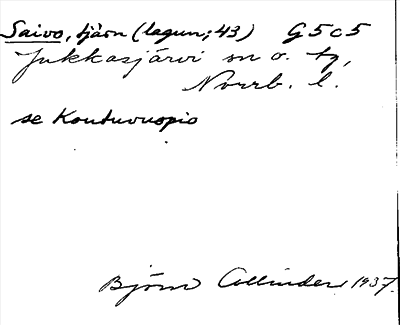 Saivo, tjärn (lagun; 43) G5c5
Jukkasjärvi sn o. tg,
Norrb. l.
se Koutuvuopio
Björn Collinder, 1937.